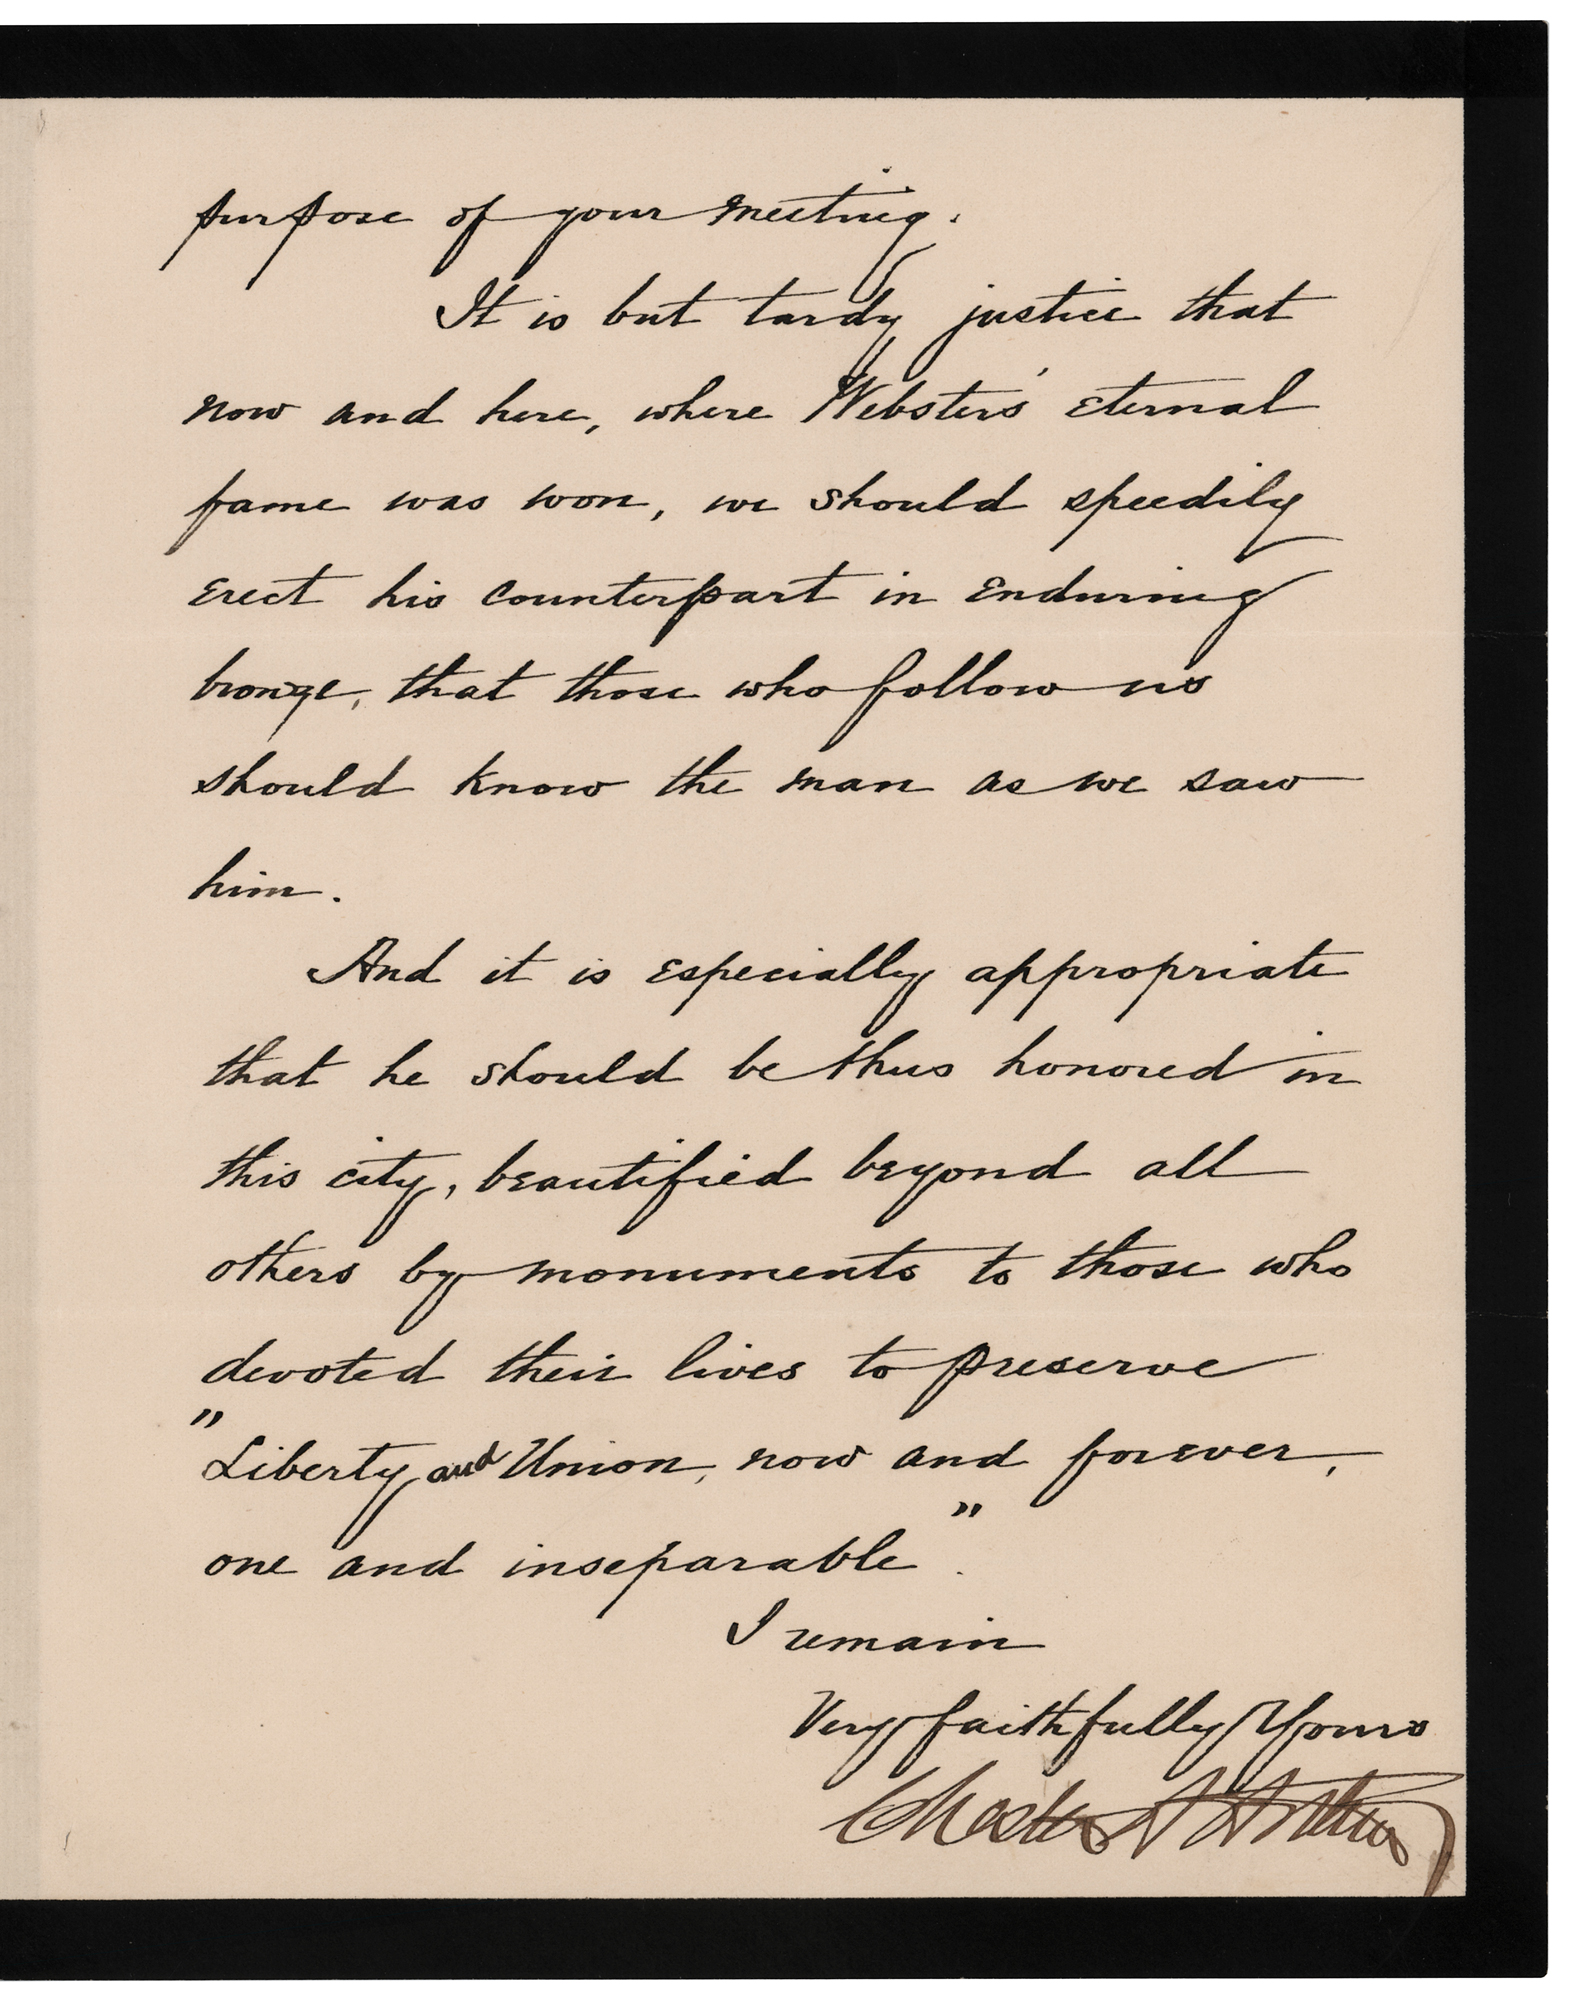 purpose of your meeting.
It is but tardy justice that
now and here, where Webster's eternal
fame was won, we should speedily
erect his counterpart in enduring
bronze, that those who follow us
should know the man as we saw
him.
And it is especially appropriate
that he should be thus honored in
this city, beautified beyond all
others by monuments to those who
devoted their lives to preserve
"Liberty and Union, now and forever,
one and inseparable".
I remain
Very faithfully Yours
Chester A Arthur